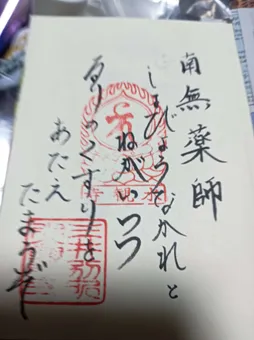 南無薬師
しょびょうなかれと
ねがいつつ
るりのくすりを
あたえ
たまうぞ